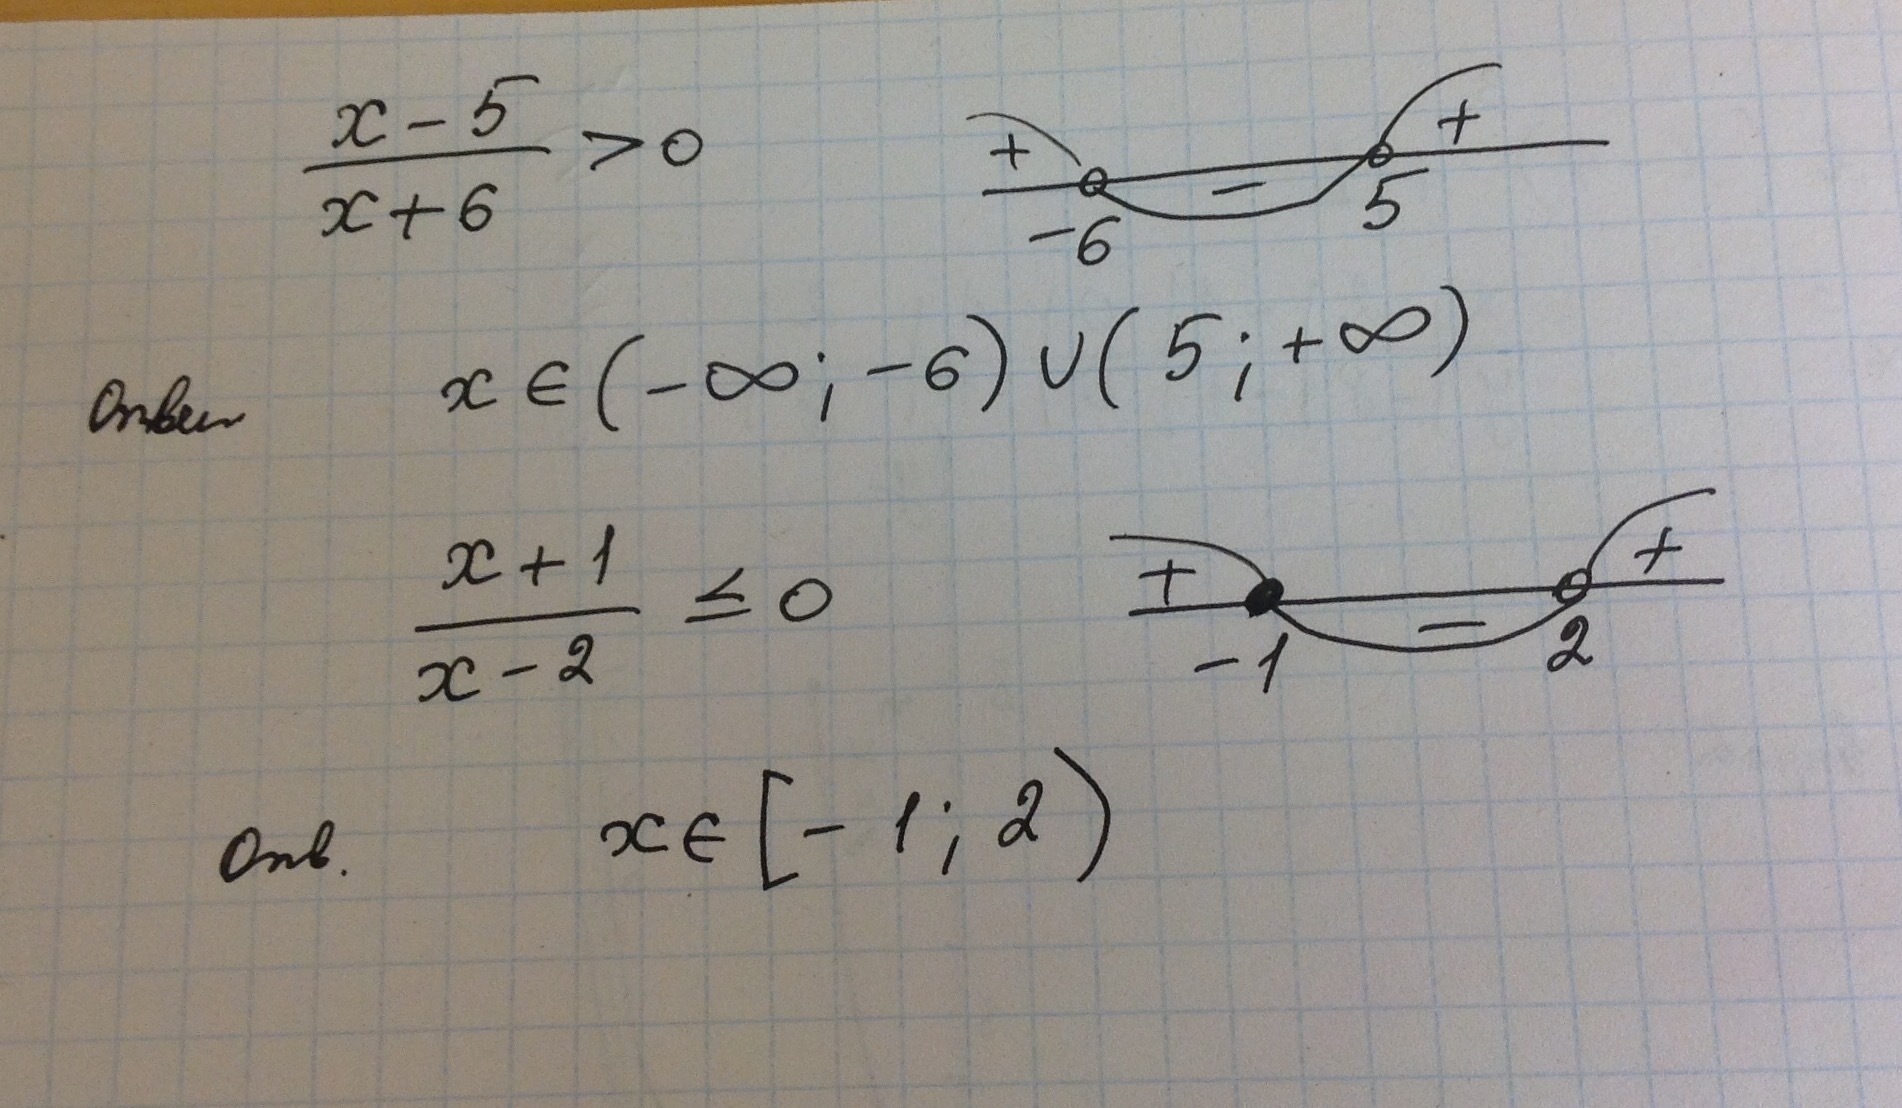 x - 5
x + 6 > 0
+ - +
-6 5
Ответ x ∈ (-∞; -6) ∪ (5; +∞)
x + 1
x - 2 ≤ 0
+ - +
-1 2
Отв. x ∈ [-1; 2)